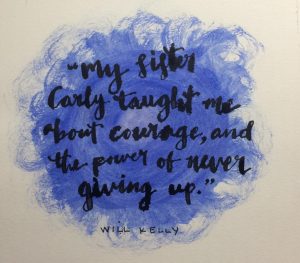 "my sister
Carly taught me
about courage, and
the power of never
giving up."
WILL KELLY